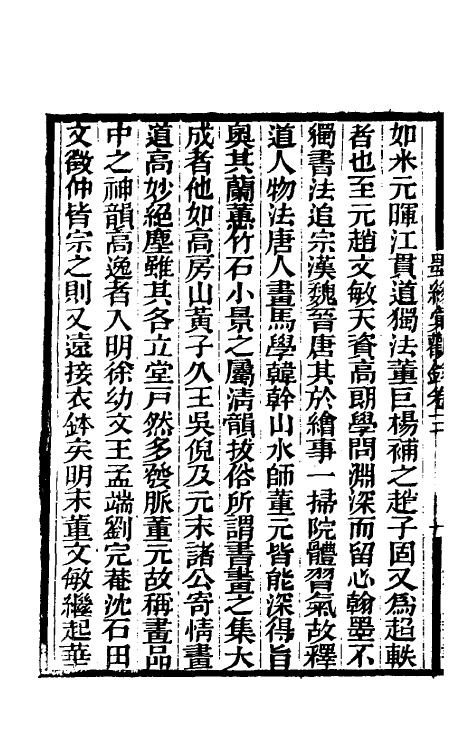 如米元暉江貫道獨法董巨楊補之趙子固又為超軼
者也至元趙文敏天資高朗學問淵深而留心翰墨不
獨書法追宗漢魏晉唐其於繪事一掃院體習氣故釋
道人物法唐人畫馬學韓幹山水師董元皆能深得旨
奥其蘭蕙竹石小景之屬清韻拔俗所謂書畫之集大
成者他如高房山黃子久王吳倪及元末諸公寄情畫
道高妙絕塵雖其各立堂戶然多發脈董元故稱畫品
中之神韻高逸者入明徐幼文王孟端劉完菴沈石田
文徵仲皆宗之則又遠接衣鉢矣明末董文敏繼起華
墨緣彙觀錄卷三